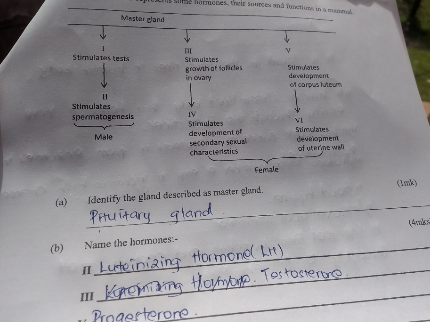 represents some hormones, their sources and functions in a mammal.
Master gland
I III V
Stimulates tests Stimulates growth of follicles in ovary Stimulates development of corpus luteum
II IV VI
Stimulates spermatogenesis Stimulates development of secondary sexual characteristics Stimulates development of uterine wall
Male Female
(a) Identify the gland described as master gland. (1mk)
Pituitary gland.
(b) Name the hormones:- (4mks
II Luteinizing Hormone( LH)
III Hormone. Testosterone
Progesterone.